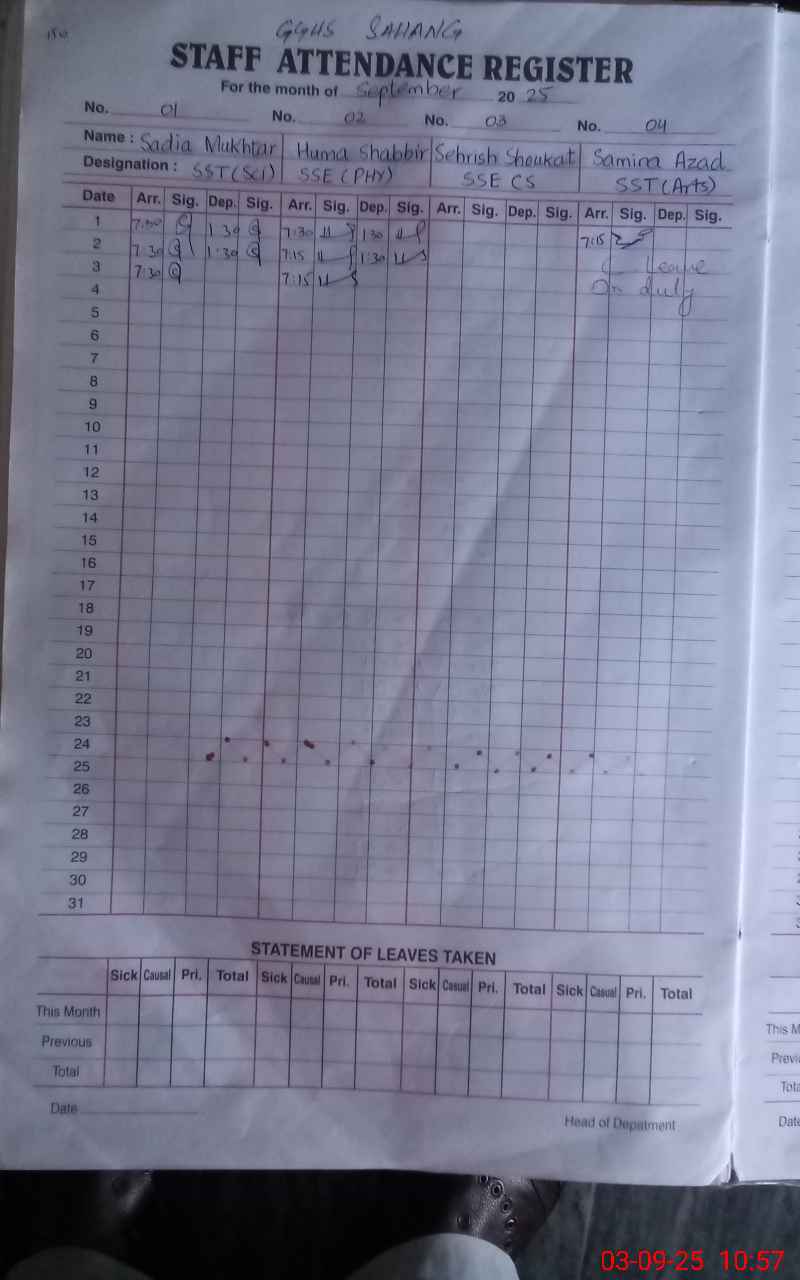 GGHS SAHANG
STAFF ATTENDANCE REGISTER
For the month of September 20 25
No. 01 No. 02 No. 03 No. 04
Name : Sadia Mukhtar Huma Shabbir Sehrish Shoukat Samina Azad
Designation : SST(Sci) SSE (PHY) SSE CS SST(Arts)
Date Arr. Sig. Dep. Sig. Arr. Sig. Dep. Sig. Arr. Sig. Dep. Sig. Arr. Sig. Dep. Sig.
1 1:30 7:30 1:30 7:15
2 7:30 1:30 7:15 1:30 Leave
3 7:30 7:15 On duty
4
5
6
7
8
9
10
11
12
13
14
15
16
17
18
19
20
21
22
23
24
25
26
27
28
29
30
31
STATEMENT OF LEAVES TAKEN
Sick Causal Pri. Total Sick Causal Pri. Total Sick Casual Pri. Total Sick Casual Pri. Total
This Month
Previous
Total
Date
Head of Depatment
This M
Previ
Tota
Date
03-09-25 10:57